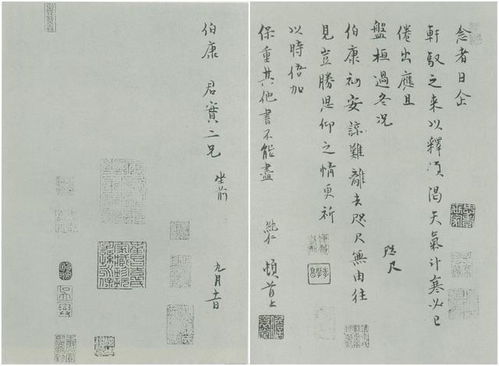 念者日企
軒馭之來以釋傾渴天氣計寒必已
倦出應且
盤桓過冬況
咫尺
伯康初安諒難離去咫尺無由往
見豈勝思仰之情更祈
以時倍加
保重其他書不能盡
純仁 頓首上
伯康 君實二兄 坐前
九月十一日